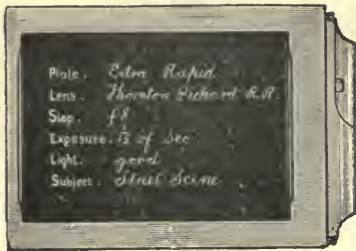 Plate. Extra Rapid.
Lens. Thornton Pickard R.R.
Stop. f8
Exposure. of Sec
Light. good
Subject. Street Scene.